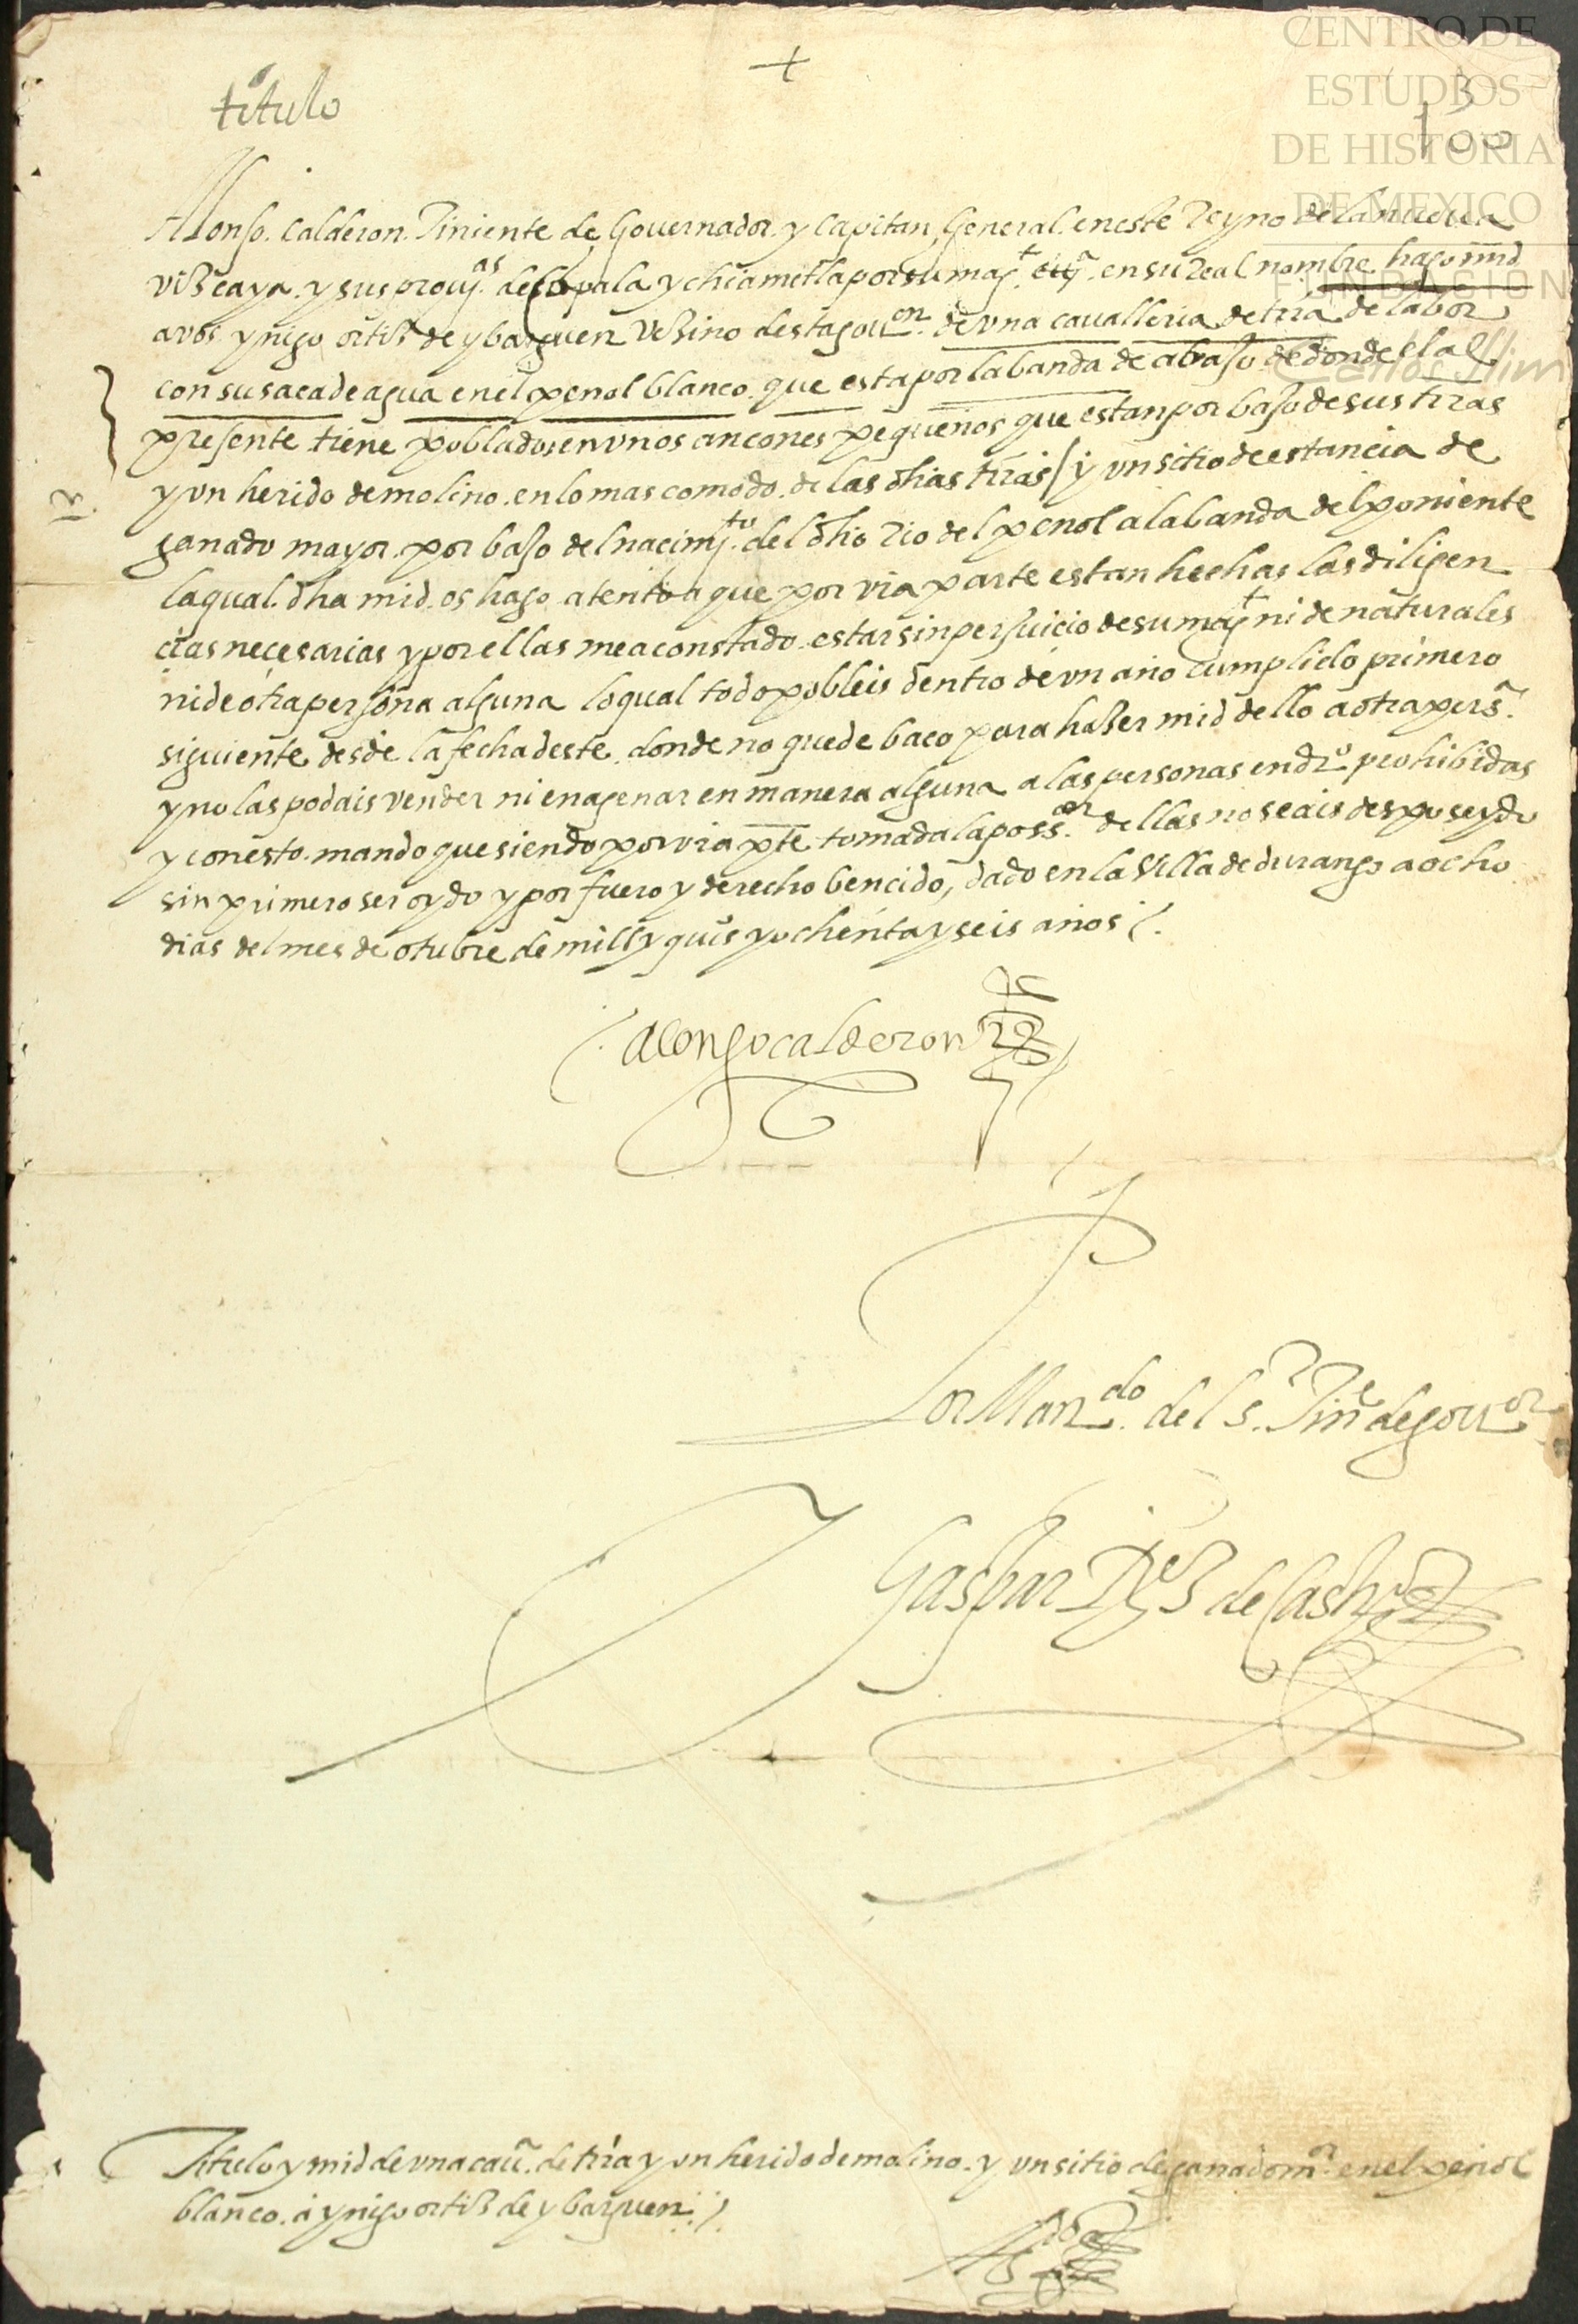 +
titulo
CENTRO DE
ESTUDIOS
DE HISTORIA
DE MEXICO
FUNDACION
Carlos Slim
3
100
Alonso. Calderon. Tiniente de Gouernador. y Capitan General. eneste Reyno de la nueua
vizcaya. y sus prouj.as de copala y chiametla por su mag.t en su Real nombre. hago mrd
a vos ynigo ortiz de ybarguen Vezino desta gou.on de vna caualleria de trra de labor
con su saca de agua en el penol blanco. que esta por la banda de abaso. de donde el al
presente tiene poblado. en vnos ancones pequeños que estan por baso de sus trras
y vn herido de molino. en lo mas comodo. de las dhas trras / y vn sitio de estancia de
ganado mayor. por baso del nacimj.to del dho Rio del penol a la banda del poniente
la qual. dha mrd. os hago atento a que por vra parte estan hechas las diligen
cias necesarias y por ellas me a constado. estar sin perjuicio de su magt ni de naturales
ni de otra persona alguna lo qual todo pobleis dentro de vn año cumplido primero
siguiente desde la fecha deste. donde no quede baco para hazer mrd dello a otra persa.
y no las podais vender ni enagenar en manera alguna a las personas en dro. prohibidas
y con esto. mando que siendo por vra pte tomada la poss.on dellas no seais desposeydo
sin primero ser oydo y por fuero y derecho bencido, dado en la Villa de durango a ocho
dias del mes de otubre de mill y quis y ochenta y seis años /.
alonso calderon
Por Man.do del s.r Tine de gou.or
Gaspar Rs de Castro
Titulo y mrd de vna cau.a de trra y vn herido de molino. y vn sitio de ganado m.or en el penol
blanco. a ynigo ortiz de ybarguen /.